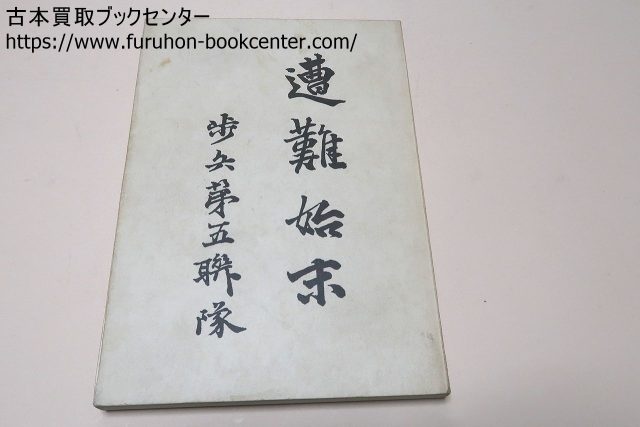 古本買取ブックセンター
https://www.furuhon-bookcenter.com/
遭難始末
歩兵第五聯隊